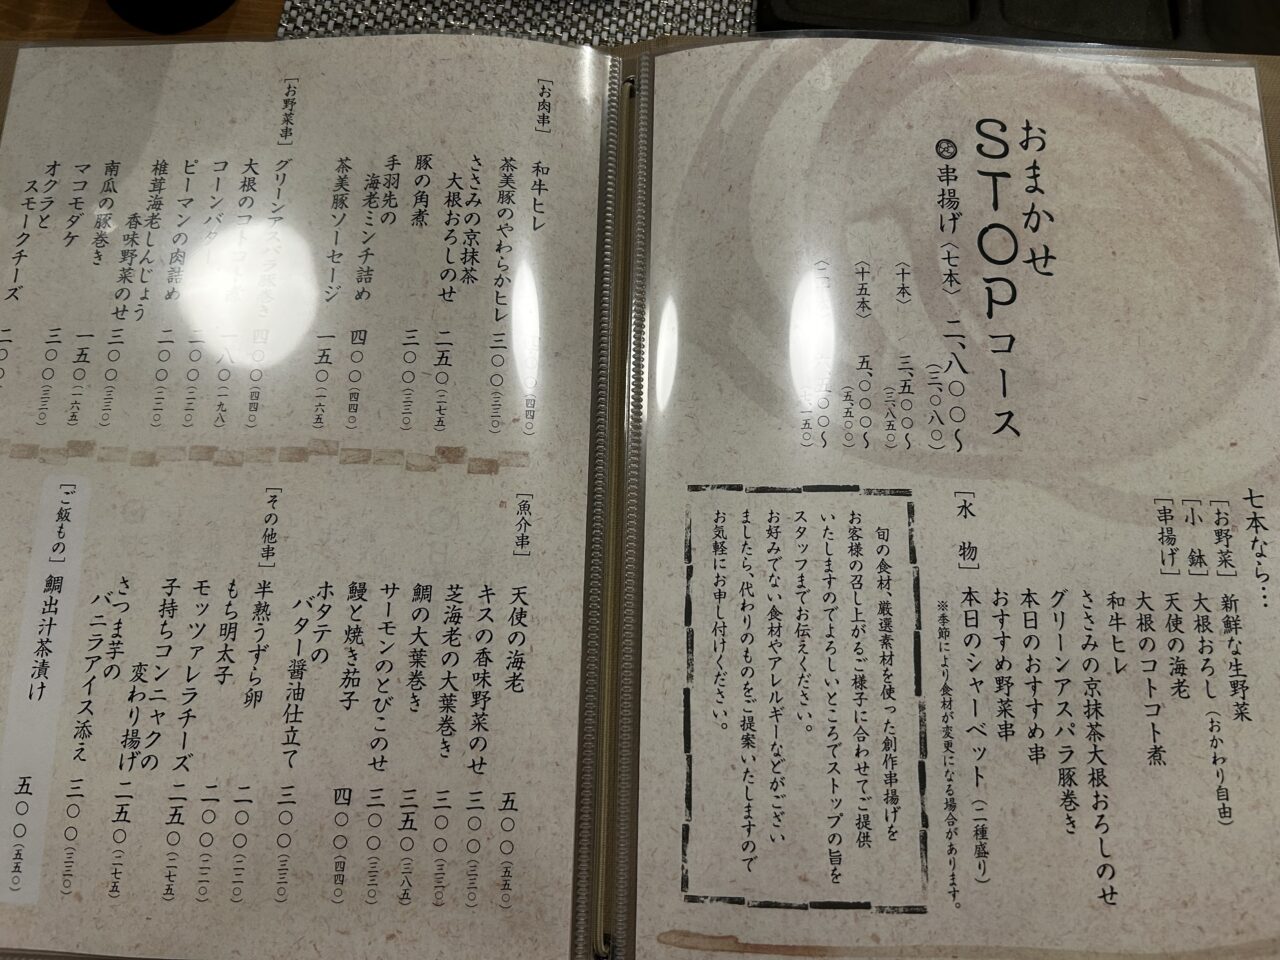 おまかせ
STOPコース
串揚げ〈七本〉 二、八〇〇〜
（三、〇八〇）
〈十本〉 三、五〇〇〜
（三、八五〇）
〈十五本〉 五、〇〇〇〜
（五、五〇〇）
七本なら…
［お野菜］ 新鮮な生野菜
大根おろし（おかわり自由）
［小鉢］ 天使の海老
［串揚げ］ 大根のコトコト煮
和牛ヒレ
ささみの京抹茶大根おろしのせ
グリーンアスパラ豚巻き
本日のおすすめ串
おすすめ野菜串
［水物］ 本日のシャーベット（二種盛り）
※季節により食材が変更になる場合があります。
旬の食材、厳選素材を使った創作串揚げを
お客様の召し上がるご様子に合わせてご提供
いたしますのでよろしいところでストップの旨を
スタッフまでお伝えください。
お好みでない食材やアレルギーなどがござい
ましたら、代わりのものをご提案いたしますので
お気軽にお申し付けください。
［お肉串］
和牛ヒレ
茶美豚のやわらかヒレ 三〇〇（三三〇）
ささみの京抹茶
大根おろしのせ 二五〇（二七五）
豚の角煮 三〇〇（三三〇）
手羽先の
海老ミンチ詰め 四〇〇（四四〇）
茶美豚ソーセージ 一五〇（一六五）
［お野菜串］
グリーンアスパラ豚巻き 四〇〇（四四〇）
大根のコトコト煮 一八〇（一九八）
コーンバター 二〇〇（二二〇）
ピーマンの肉詰め 二〇〇（二二〇）
椎茸海老しんじょう
香味野菜のせ 三〇〇（三三〇）
南瓜の豚巻き 一五〇（一六五）
マコモダケ 三〇〇（三三〇）
オクラと
スモークチーズ 二〇〇
［魚介串］
天使の海老 五〇〇（五五〇）
キスの香味野菜のせ 三〇〇（三三〇）
芝海老の大葉巻き 三〇〇（三三〇）
鯛の大葉巻き 三五〇（三八五）
サーモンのとびこのせ 三〇〇（三三〇）
鰻と焼き茄子 四〇〇（四四〇）
ホタテの
バター醤油仕立て 三〇〇（三三〇）
［その他串］
半熟うずら卵 二〇〇（二二〇）
もち明太子 二〇〇（二二〇）
モッツァレラチーズ 二五〇（二七五）
子持ちコンニャクの
変わり揚げ 二五〇（二七五）
さつま芋の
バニラアイス添え 三〇〇（三三〇）
［ご飯もの］ 鯛出汁茶漬け 五〇〇（五五〇）